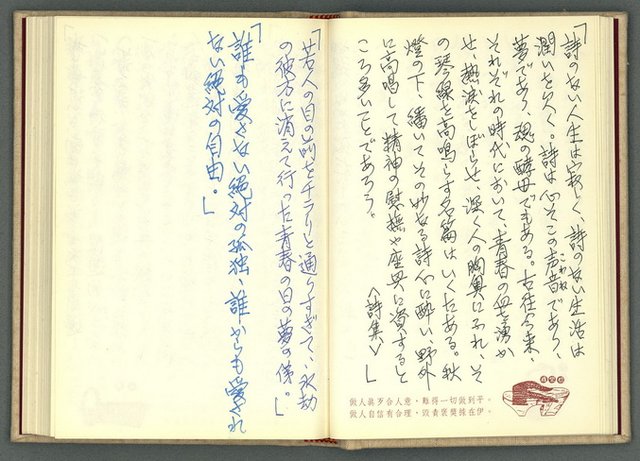 「詩のない人生は寂しく、詩のない生活は
潤いを欠く。詩は心そこの声音であり、
こわね
夢であり、魂の酵母でもある。古往今来、
それぞれの時代において、青春の血を湧か
せ、熱涙をしぼらせ、深く人の胸奥にふれ、そ
の琴線を高鳴らす名篇はいくたある。秋
燈の下、繙いてその妙なる詩心に酔い、野外
に高唱して精神の慰撫や座興に資すると
ころ多いことであろう。
〈詩集〉」
做人
合人意,難得一切做到平。
做人自信有合理,毀青裳獎妹在伊。
「若人の目の前をチラリと通りすぎて、永劫
の彼方に消えて行った青春の日の夢の俤。」
「誰も愛さない絶対の孤独、誰からも愛され
ない絶対の自由。」